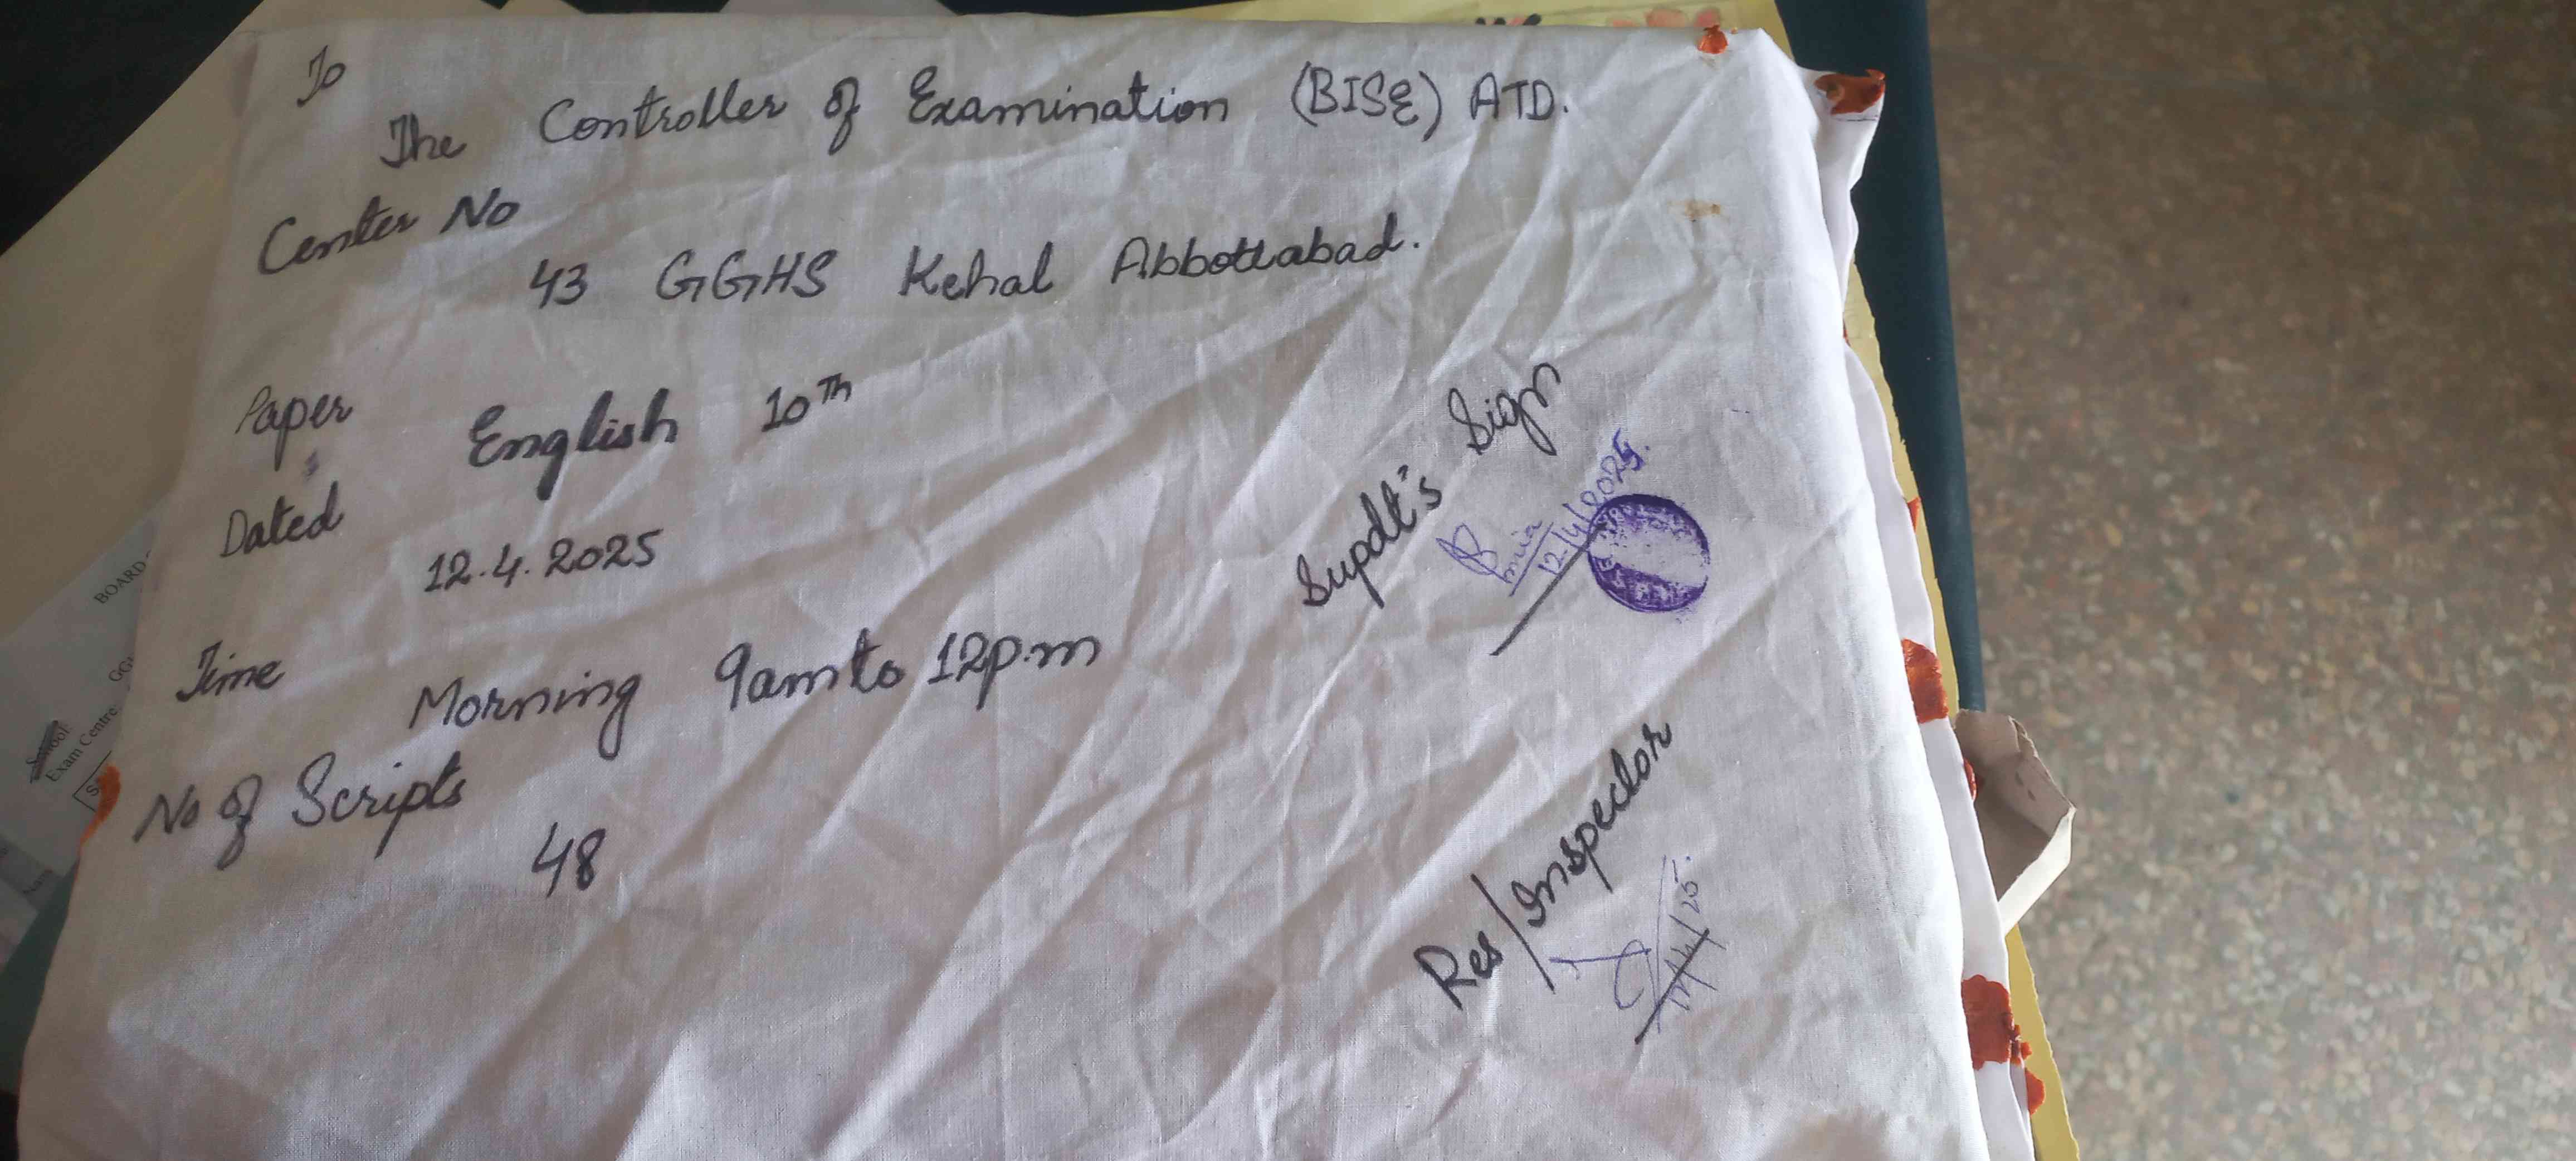 To
The Controller of Examination (BISE) ATD.
Center No
43 GGHS Kehal Abbottabad.
Paper
English 10Th
Dated
12.4.2025
Time
Morning 9am to 12p.m
No of Scripts
48
Supdlt's Sign
12/4/2025.
Res/Inspector
BOARD
GG
School:
Exam Centre